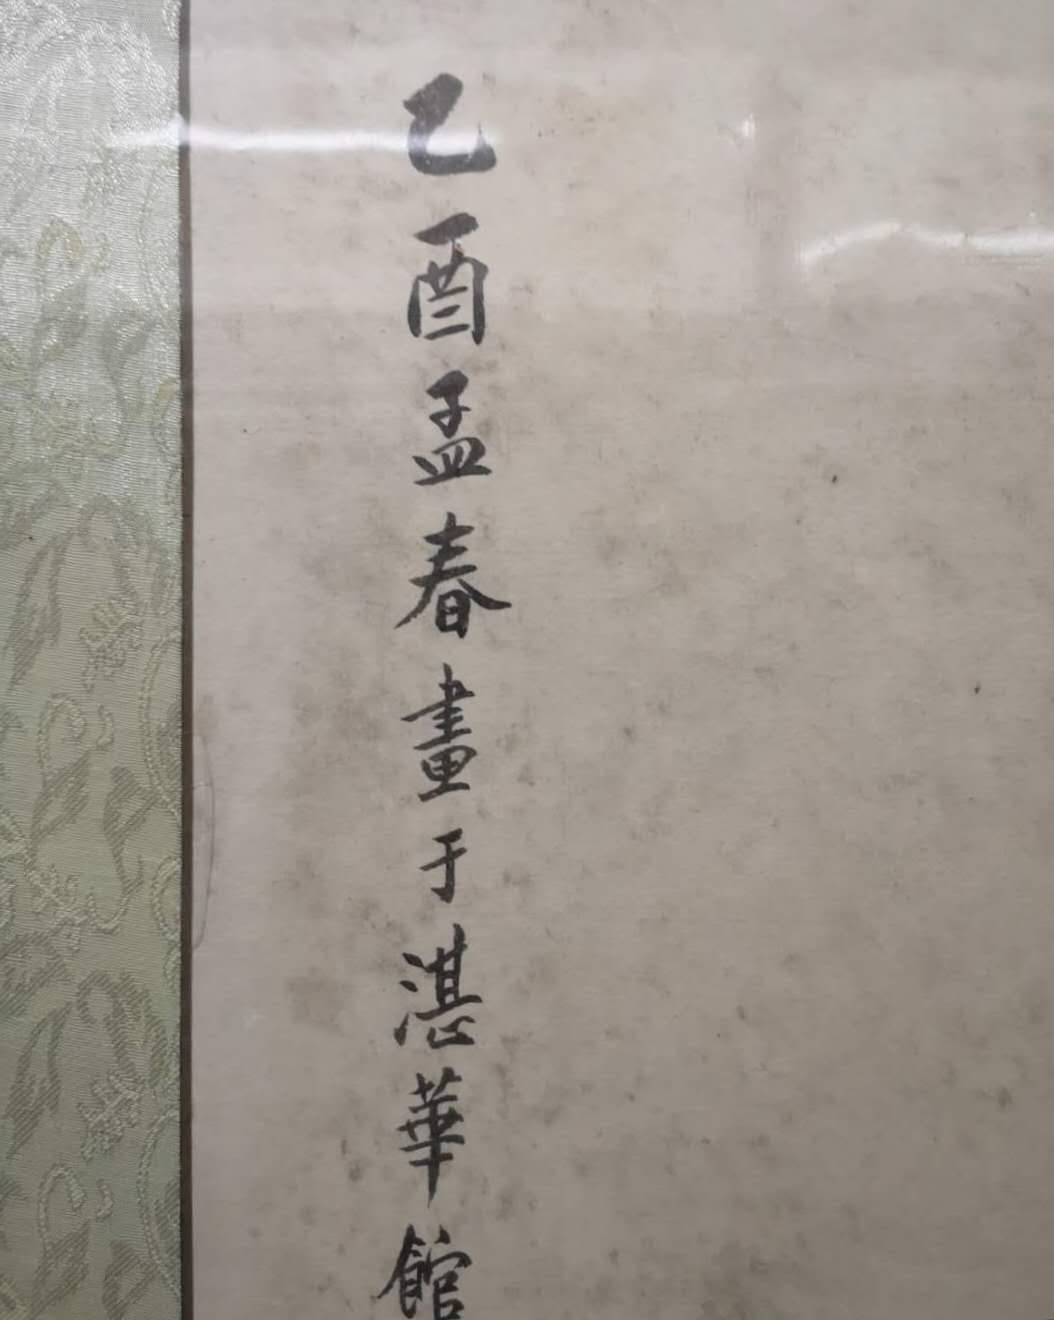 乙酉孟春畫于湛華館